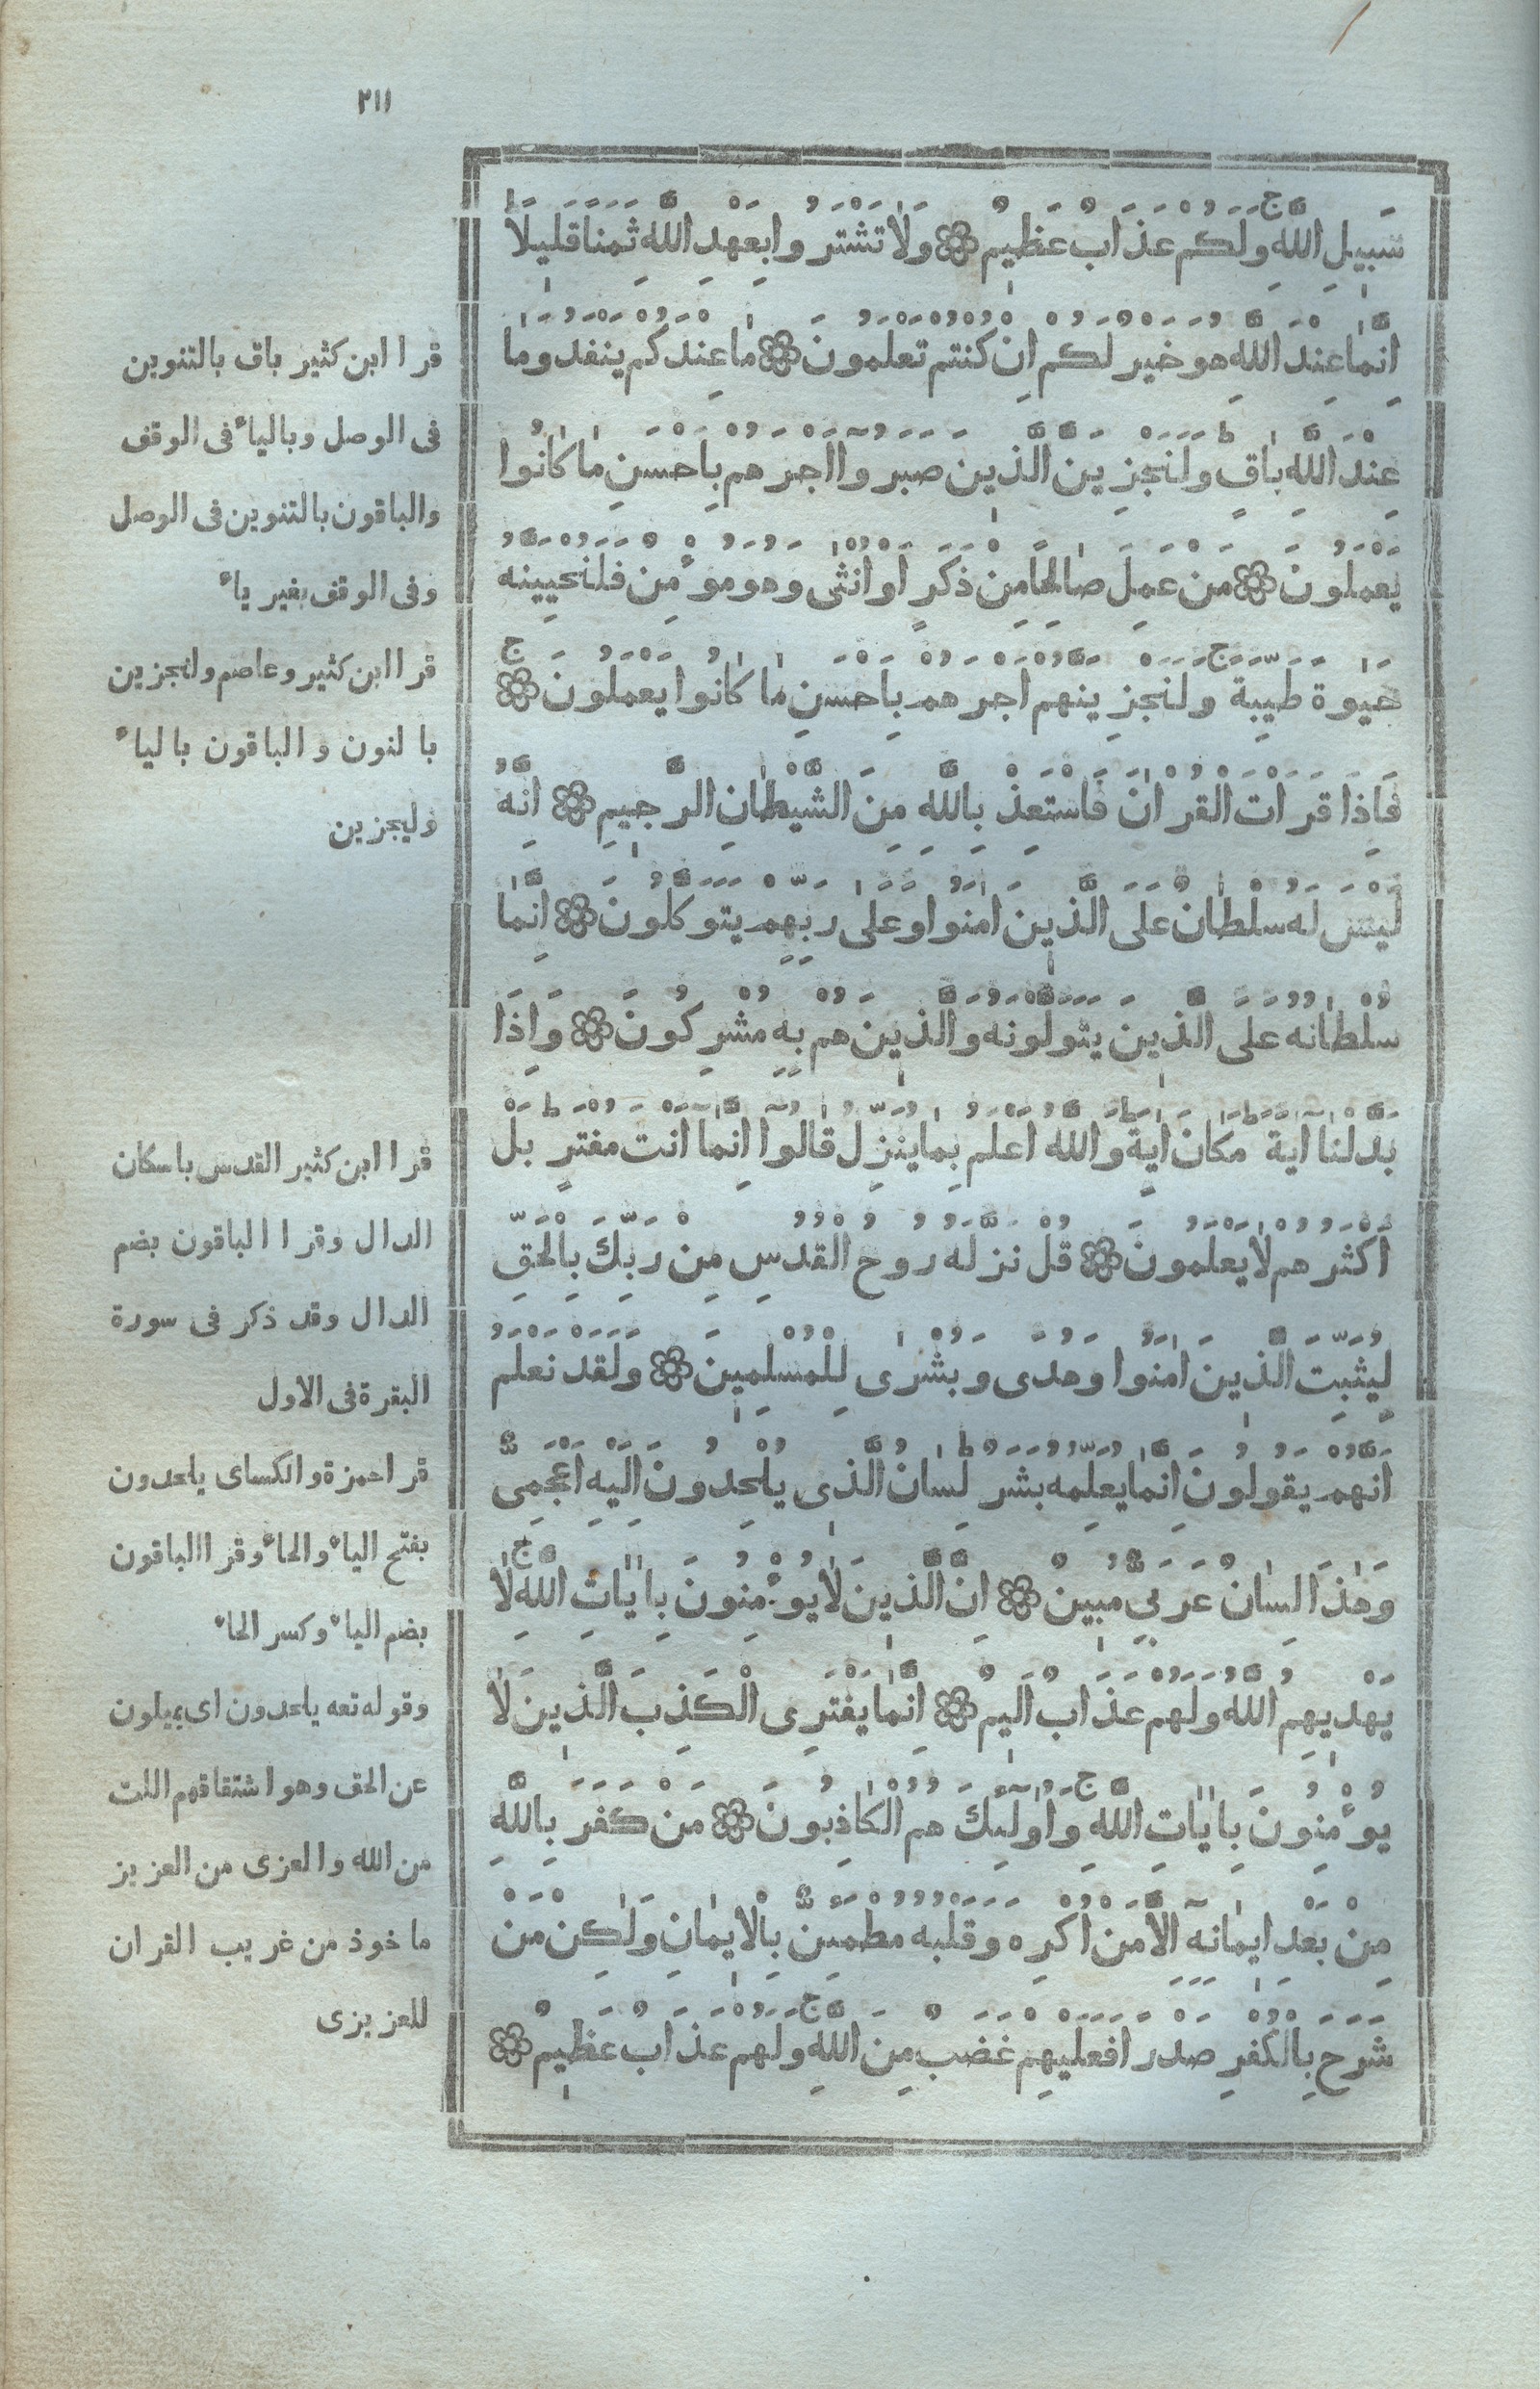 ٢١١
سَبِيلِ اللَّهِ وَلَكُمْ عَذَابٌ عَظِيمٌ وَلَا تَشْتَرُوا بِعَهْدِ اللَّهِ ثَمَنًا قَلِيلًا
اِنَّمَا عِنْدَ اللَّهِ هُوَ خَيْرٌ لَكُمْ اِنْ كُنْتُمْ تَعْلَمُونَ مَا عِنْدَكُمْ يَنْفَدُ وَمَا
عِنْدَ اللَّهِ بَاقٍ وَلَنَجْزِيَنَّ الَّذِينَ صَبَرُوا اَجْرَهُمْ بِاَحْسَنِ مَا كَانُوا
يَعْمَلُونَ مَنْ عَمِلَ صَالِحًا مِنْ ذَكَرٍ اَوْ اُنْثٰى وَهُوَ مُؤْمِنٌ فَلَنُحْيِيَنَّهُ
حَيٰوةً طَيِّبَةً وَلَنَجْزِيَنَّهُمْ اَجْرَهُمْ بِاَحْسَنِ مَا كَانُوا يَعْمَلُونَ
فَاِذَا قَرَاْتَ الْقُرْاٰنَ فَاسْتَعِذْ بِاللَّهِ مِنَ الشَّيْطَانِ الرَّجِيمِ اِنَّهُ
لَيْسَ لَهُ سُلْطَانٌ عَلَى الَّذِينَ اٰمَنُوا وَعَلٰى رَبِّهِمْ يَتَوَكَّلُونَ اِنَّمَا
سُلْطَانُهُ عَلَى الَّذِينَ يَتَوَلَّوْنَهُ وَالَّذِينَ هُمْ بِهِ مُشْرِكُونَ وَاِذَا
بَدَّلْنَا اٰيَةً مَكَانَ اٰيَةٍ وَاللَّهُ اَعْلَمُ بِمَا يُنَزِّلُ قَالُوا اِنَّمَا اَنْتَ مُفْتَرٍ بَلْ
اَكْثَرُهُمْ لَا يَعْلَمُونَ قُلْ نَزَّلَهُ رُوحُ الْقُدُسِ مِنْ رَبِّكَ بِالْحَقِّ
لِيُثَبِّتَ الَّذِينَ اٰمَنُوا وَهُدًى وَبُشْرٰى لِلْمُسْلِمِينَ وَلَقَدْ نَعْلَمُ
اَنَّهُمْ يَقُولُونَ اِنَّمَا يُعَلِّمُهُ بَشَرٌ لِسَانُ الَّذِى يُلْحِدُونَ اِلَيْهِ اَعْجَمِىٌّ
وَهٰذَا لِسَانٌ عَرَبِىٌّ مُبِينٌ اِنَّ الَّذِينَ لَا يُؤْمِنُونَ بِاٰيَاتِ اللَّهِ لَا
يَهْدِيهِمُ اللَّهُ وَلَهُمْ عَذَابٌ اَلِيمٌ اِنَّمَا يَفْتَرِى الْكَذِبَ الَّذِينَ لَا
يُؤْمِنُونَ بِاٰيَاتِ اللَّهِ وَاُولٰٓئِكَ هُمُ الْكَاذِبُونَ مَنْ كَفَرَ بِاللَّهِ
مِنْ بَعْدِ اِيمَانِهِ اِلَّا مَنْ اُكْرِهَ وَقَلْبُهُ مُطْمَئِنٌّ بِالْاِيمَانِ وَلٰكِنْ مَنْ
شَرَحَ بِالْكُفْرِ صَدْرًا فَعَلَيْهِمْ غَضَبٌ مِنَ اللَّهِ وَلَهُمْ عَذَابٌ عَظِيمٌ
قرا ابن كثير باق بالتنوين
فى الوصل وبالياء فى الوقف
والباقون بالتنوين فى الوصل
وفى الوقف بغير ياء
قرا ابن كثير وعاصم ولنجزين
بالنون والباقون بالياء
وليجزين
قرا ابن كثير القدس باسكان
الدال وقرا الباقون بضم
الدال وقد ذكر فى سورة
البقرة فى الاول
قرا حمزة والكساى يلحدون
بفتح الياء والحاء وقرا الباقون
بضم الياء وكسر الحاء
وقوله تعه يلحدون اى يميلون
عن الحق وهو اشتقاقهم اللت
من الله والعزى من العزيز
ماخوذ من غريب القران
للعزيزى